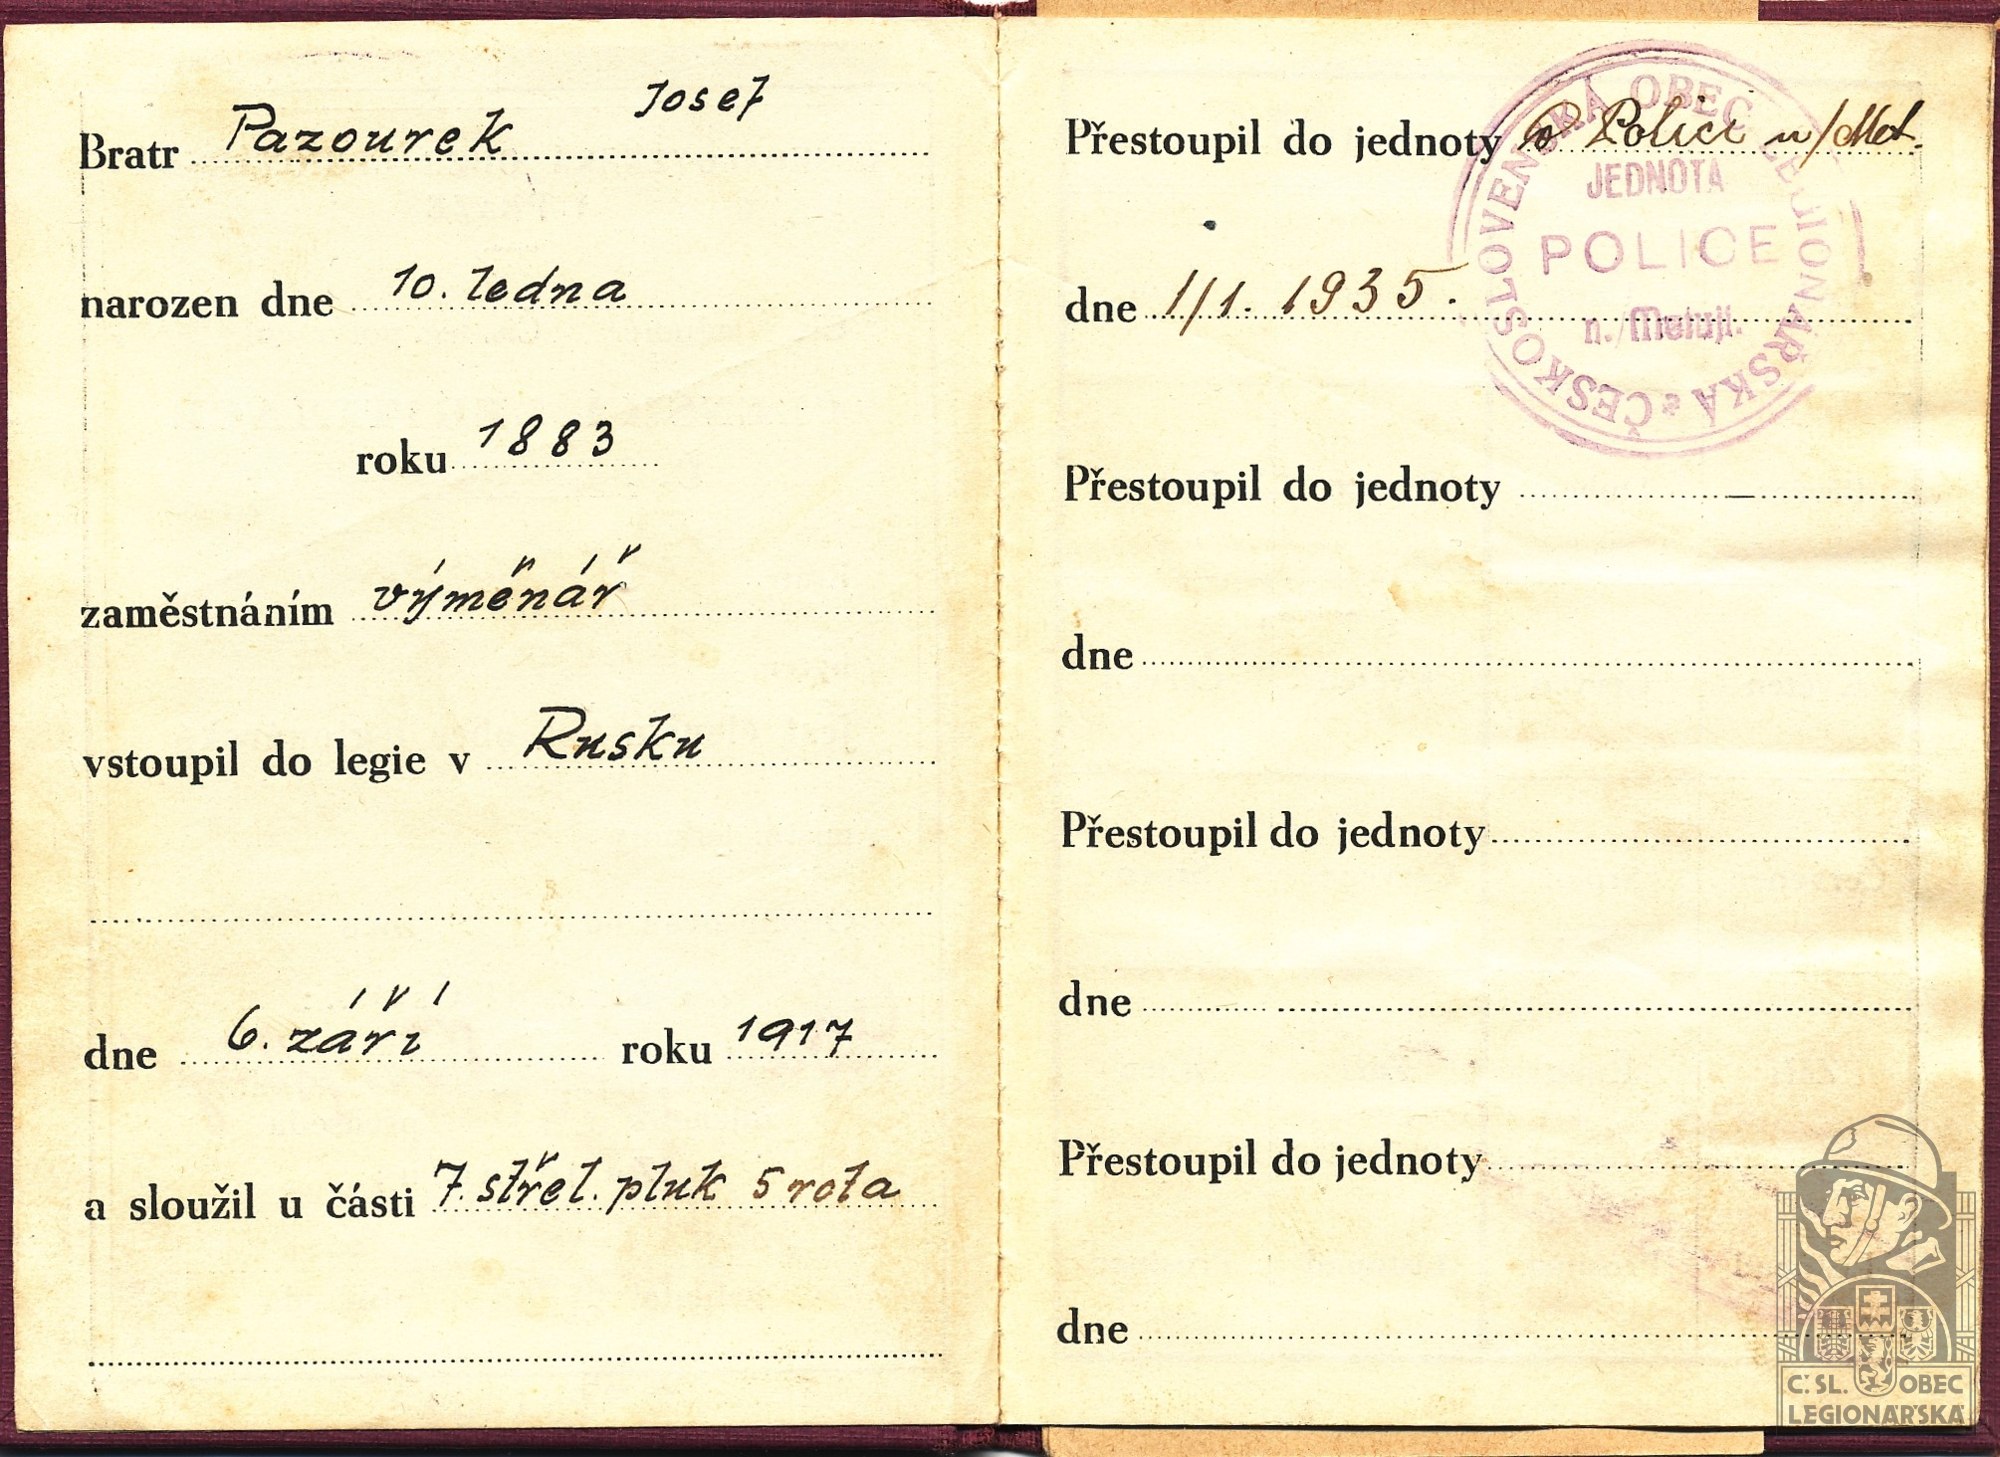 Bratr Pazourek Josef
narozen dne 10. ledna
roku 1883
zaměstnáním výměnář
vstoupil do legie v Rusku
dne 6. září roku 1917
a sloužil u části 7. střel. pluk 5 rota
Přestoupil do jednoty v Polici n/Met.
dne 1/1. 1935.
ČESKOSLOVENSKÁ OBEC LEGIONÁŘSKÁ
JEDNOTA
POLICE
n./Metují.
Přestoupil do jednoty
dne
Přestoupil do jednoty
dne
Přestoupil do jednoty
dne
Č.SL. OBEC
LEGIONÁŘSKÁ